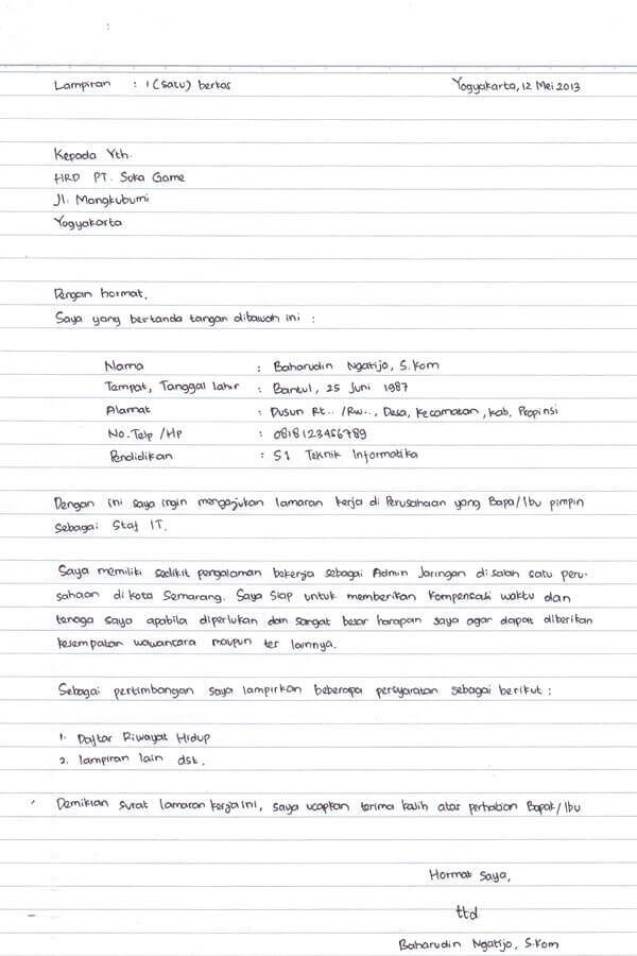 Lampiran : 1 (satu) berkas Yogyakarta, 12 Mei 2013
Kepada Yth.
HRD PT. Suka Game
Jl. Mangkubumi
Yogyakarta
Dengan hormat,
Saya yang bertanda tangan dibawah ini :
Nama : Baharudin Ngatijo, S.Kom
Tempat, Tanggal lahir : Bantul, 25 Juni 1987
Alamat : Dusun Rt.. /Rw.., Desa, Kecamatan, Kab, Propinsi
No. Telp /HP : 0818123456789
Pendidikan : S1 Teknik Informatika
Dengan ini saya ingin mengajukan lamaran kerja di Perusahaan yang Bapa/Ibu pimpin
Sebagai Staf IT.
Saya memiliki sedikit pengalaman bekerja sebagai Admin Jaringan di salah satu peru-
sahaan di kota Semarang. Saya Siap untuk memberikan kompensasi waktu dan
tenaga saya apabila diperlukan dan sangat besar harapan saya agar dapat diberikan
kesempatan wawancara maupun tes lainnya.
Sebagai pertimbangan saya lampirkan beberapa persyaratan sebagai berikut :
1. Daftar Riwayat Hidup
2. lampiran lain dsk.
Demikian Surat lamaran kerja ini, saya ucapkan terima kasih atas perhatian Bapak/Ibu
Hormat Saya,
ttd
Baharudin Ngatijo, S.Kom